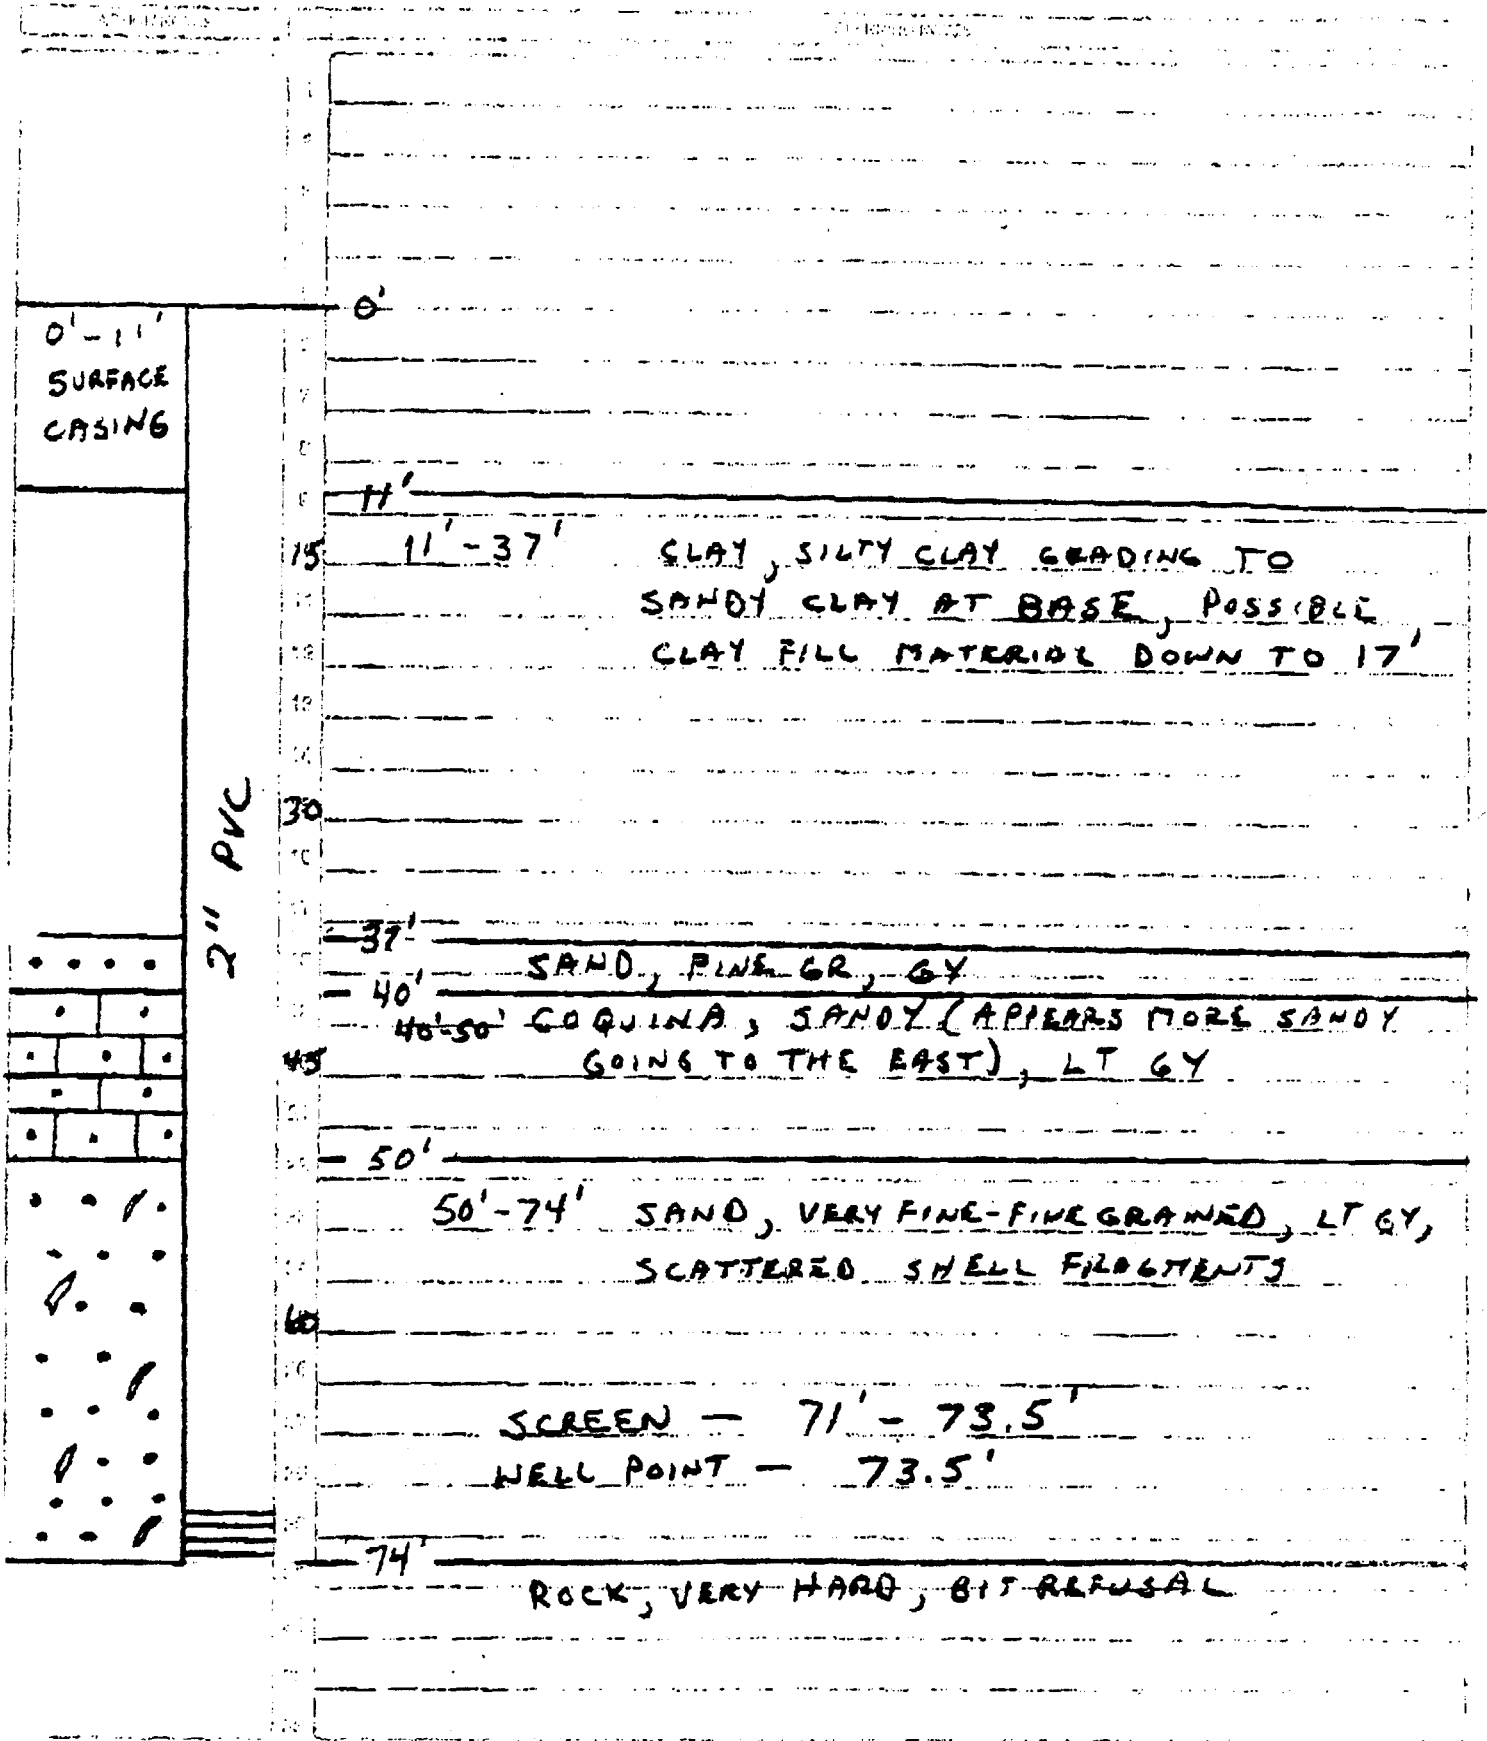 0'
0'-11'
SURFACE
CASING
11'
15 11'-37' CLAY, SILTY CLAY GRADING TO
SANDY CLAY AT BASE, POSSIBLE
CLAY FILL MATERIAL DOWN TO 17'
2" PVC
30
37'
SAND, FINE GR, GY
40'
40'-50' COQUINA, SANDY (APPEARS MORE SANDY
45 GOING TO THE EAST), LT GY
50'
50'-74' SAND, VERY FINE-FINE GRAINED, LT GY,
SCATTERED SHELL FRAGMENTS
60
SCREEN — 71' - 73.5'
WELL POINT — 73.5'
74'
ROCK, VERY HARD, BIT REFUSAL